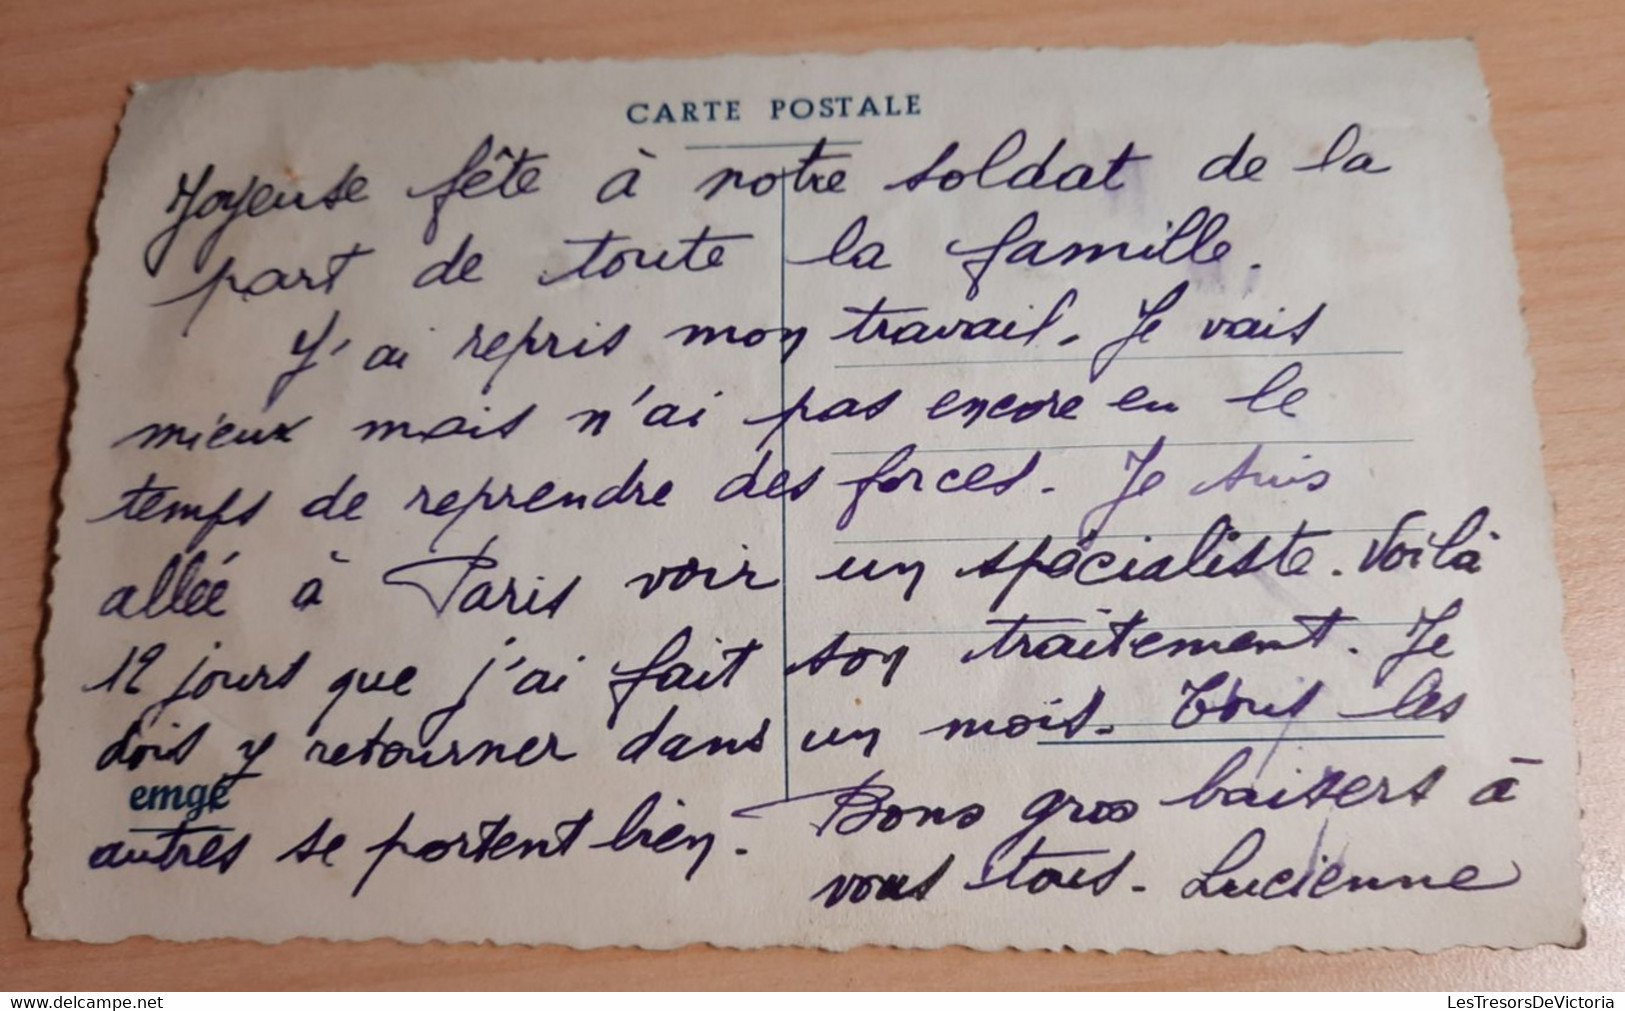 CARTE POSTALE
Joyeuse fête à notre soldat de la
part de toute la famille.
J'ai repris mon travail. Je vais
mieux mais n'ai pas encore eu le
temps de reprendre des forces. Je suis
allée à Paris voir un spécialiste. Voilà
12 jours que j'ai fait son traitement. Je
dois y retourner dans un mois. Tous les
emge
autres se portent bien. Bons gros baisers à
vous tous. Lucienne
delcampe.net
LesTresorsDeVictoria